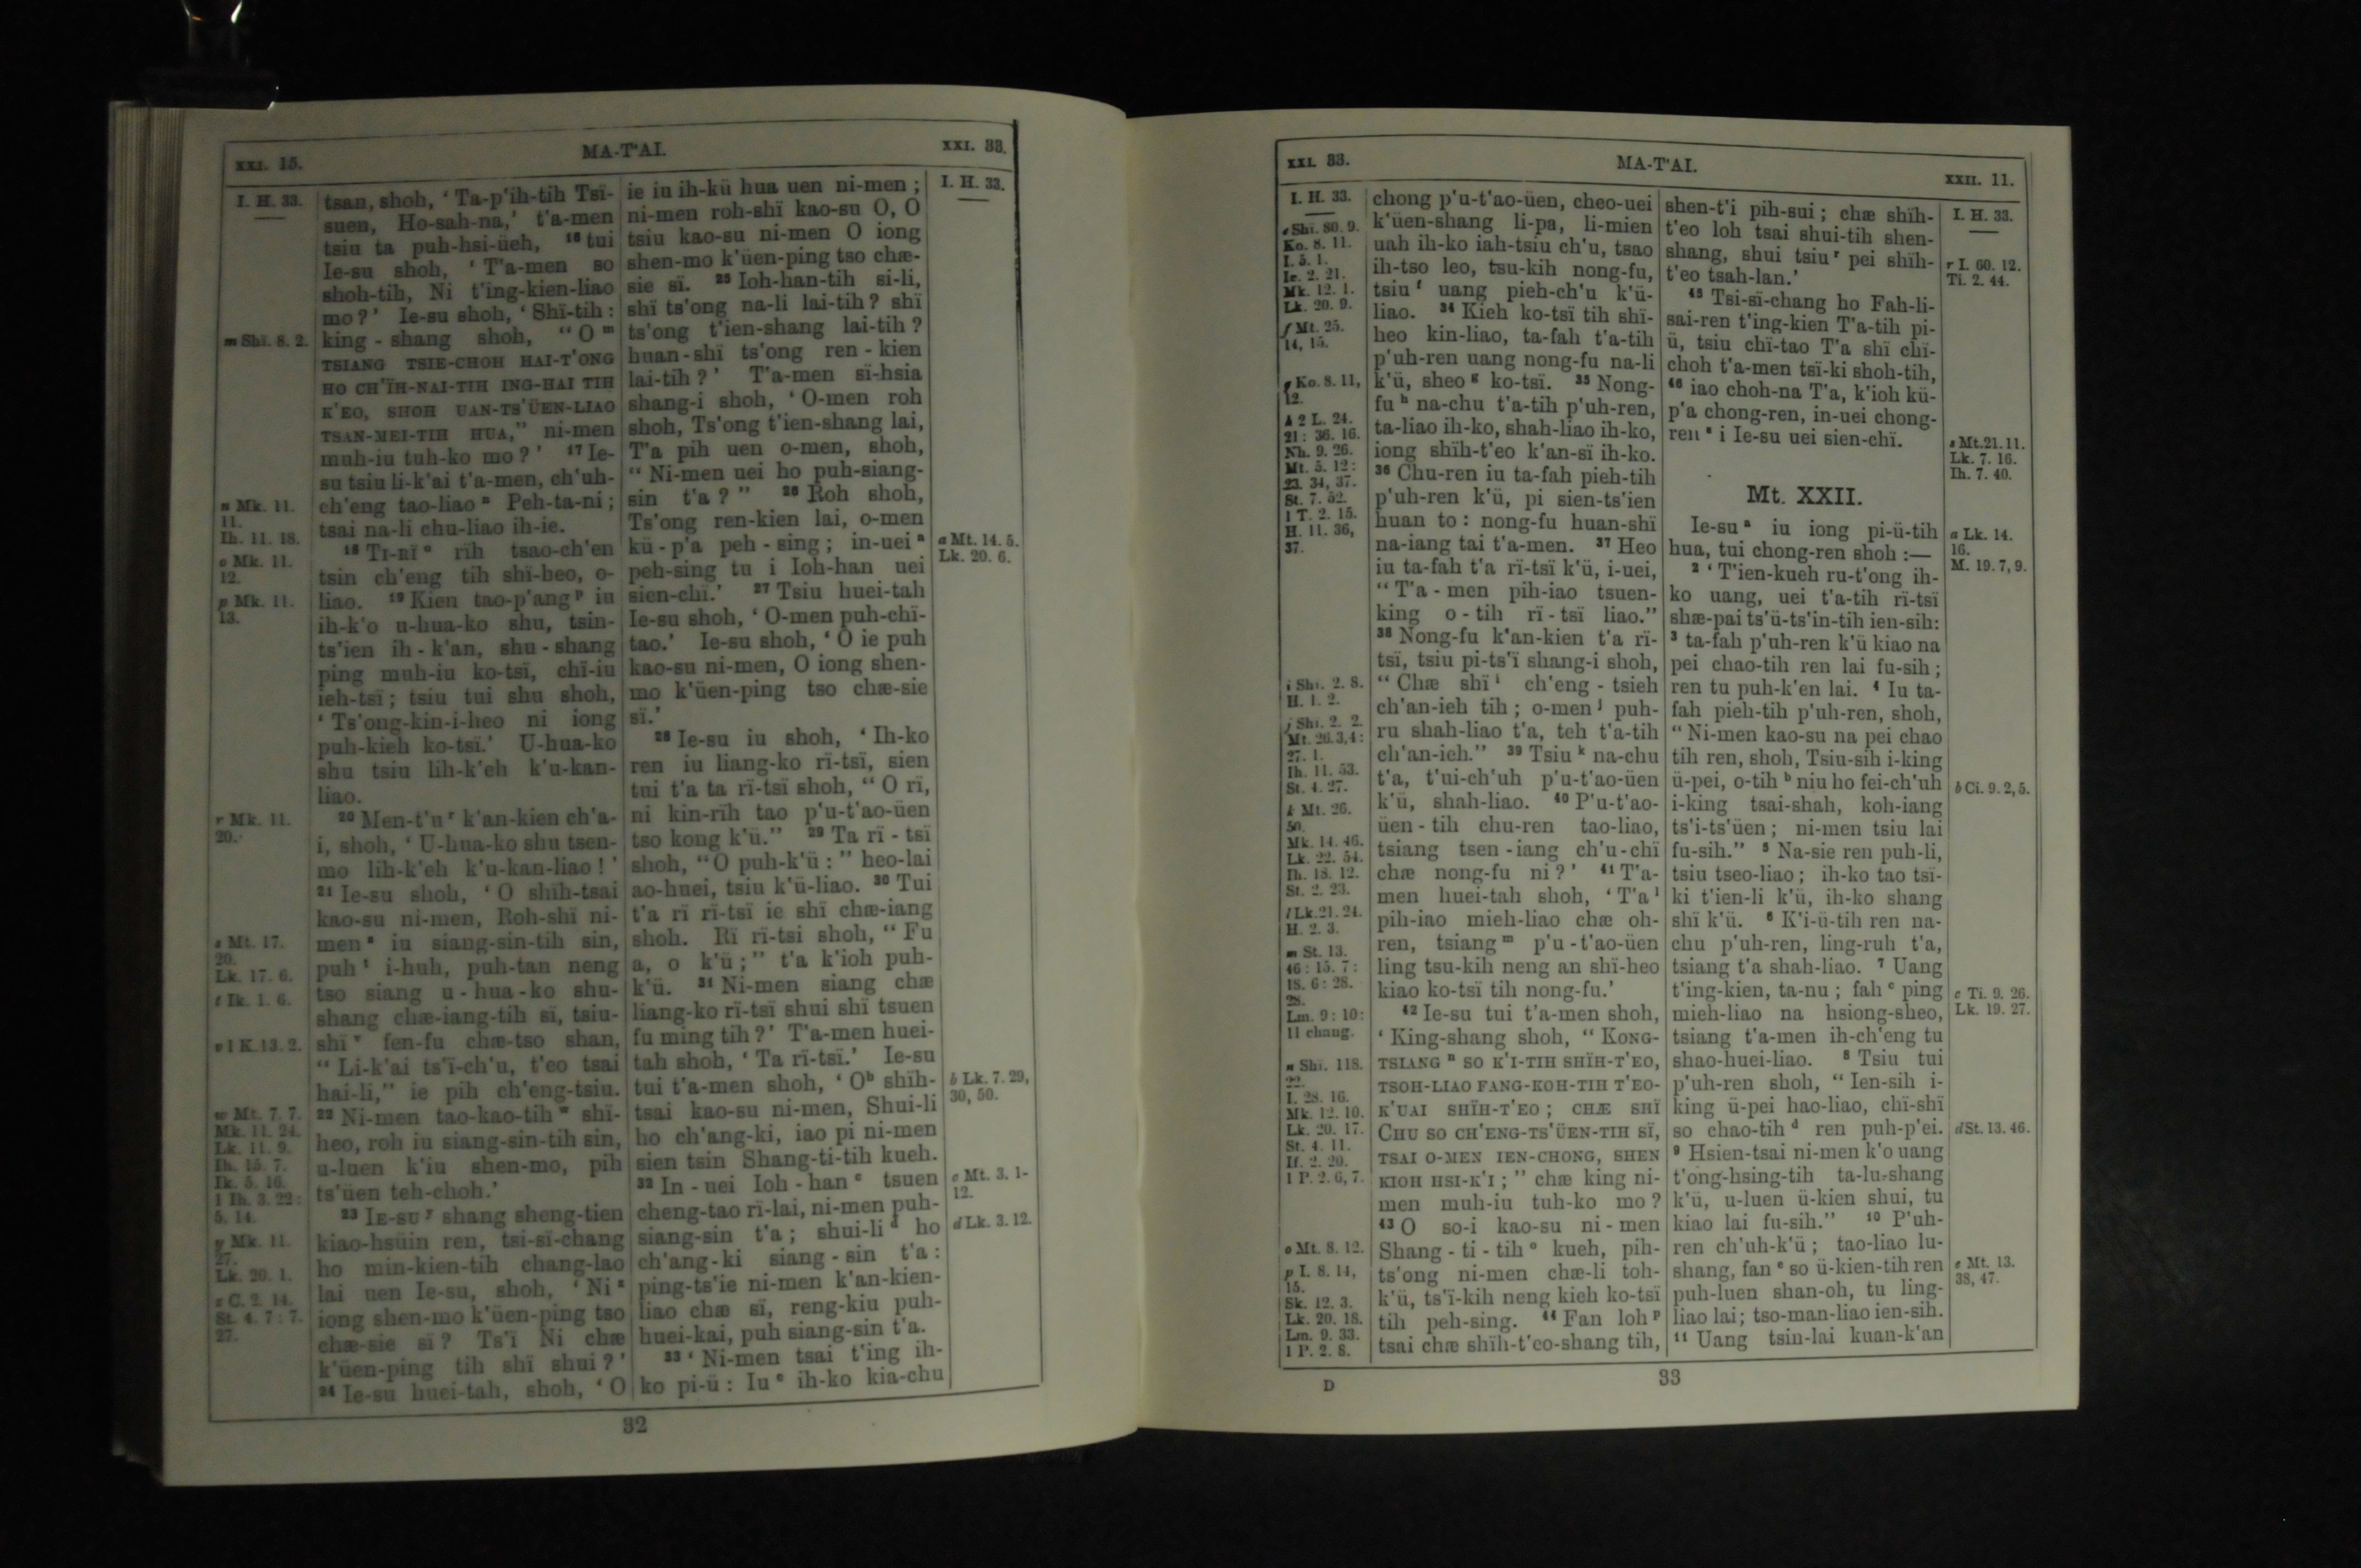 XXI. 15.
MA-T'AI.
XXI. 33.
I. H. 33.
m Shï. 8. 2.
n Mk. 11.
11.
Ih. 11. 18.
o Mk. 11.
12.
p Mk. 11.
13.
r Mk. 11.
20.
s Mt. 17.
20.
Lk. 17. 6.
t Ik. 1. 6.
v 1 K. 13. 2.
w Mt. 7. 7.
Mk. 11. 24.
Lk. 11. 9.
Ih. 15. 7.
Ik. 5. 16.
1 Ih. 3. 22:
5. 14.
y Mk. 11.
27.
Lk. 20. 1.
z C. 2. 14.
St. 4. 7: 7.
27.
tsan, shoh, ‘Ta-p'ih-tih Tsï-
suen, Ho-sah-na,’ t'a-men
tsiu ta puh-hsi-üeh, 16 tui
Ie-su shoh, ‘T'a-men so
shoh-tih, Ni t'ing-kien-liao
mo?’ Ie-su shoh, ‘Shï-tih:
king-shang shoh, “O m
TSIANG TSIE-CHOH HAI-T'ONG
HO CH'ÏH-NAI-TIH ING-HAI TIH
K'EO, SHOH UAN-TS'ÜEN-LIAO
TSAN-MEI-TIH HUA,” ni-men
muh-iu tuh-ko mo?’ 17 Ie-
su tsiu li-k'ai t'a-men, ch'uh-
ch'eng tao-liao n Peh-ta-ni;
tsai na-li chu-liao ih-ie.
18 TI-RÏ o rïh tsao-ch'en
tsin ch'eng tih shï-heo, o-
liao. 19 Kien tao-p'ang p iu
ih-k'o u-hua-ko shu, tsin-
ts'ien ih-k'an, shu-shang
ping muh-iu ko-tsï, chï-iu
ieh-tsï; tsiu tui shu shoh,
‘Ts'ong-kin-i-heo ni iong
puh-kieh ko-tsï.’ U-hua-ko
shu tsiu lih-k'eh k'u-kan-
liao.
20 Men-t'u r k'an-kien ch'a-
i, shoh, ‘U-hua-ko shu tsen-
mo lih-k'eh k'u-kan-liao!’
21 Ie-su shoh, ‘O shïh-tsai
kao-su ni-men, Roh-shï ni-
men s iu siang-sin-tih sin,
puh t i-huh, puh-tan neng
tso siang u-hua-ko shu-
shang chæ-iang-tih sï, tsiu-
shï v fen-fu chæ-tso shan,
“Li-k'ai ts'ï-ch'u, t'eo tsai
hai-li,” ie pih ch'eng-tsiu.
22 Ni-men tao-kao-tih w shï-
heo, roh iu siang-sin-tih sin,
u-luen k'iu shen-mo, pih
ts'üen teh-choh.’
23 IE-SU y shang sheng-tien
kiao-hsüin ren, tsi-sï-chang
ho min-kien-tih chang-lao
lai uen Ie-su, shoh, ‘Ni z
iong shen-mo k'üen-ping tso
chæ-sie sï? Ts'ï Ni chæ
k'üen-ping tih shï shui?’
24 Ie-su huei-tah, shoh, ‘O
ie iu ih-kü hua uen ni-men;
ni-men roh-shï kao-su O, O
tsiu kao-su ni-men O iong
shen-mo k'üen-ping tso chæ-
sie sï. 25 Ioh-han-tih si-li,
shï ts'ong na-li lai-tih? shï
ts'ong t'ien-shang lai-tih?
huan-shï ts'ong ren-kien
lai-tih?’ T'a-men sï-hsia
shang-i shoh, ‘O-men roh
shoh, Ts'ong t'ien-shang lai,
T'a pih uen o-men, shoh,
“Ni-men uei ho puh-siang-
sin t'a?” 26 Roh shoh,
Ts'ong ren-kien lai, o-men
kü-p'a peh-sing; in-uei a
peh-sing tu i Ioh-han uei
sien-chï.’ 27 Tsiu huei-tah
Ie-su shoh, ‘O-men puh-chï-
tao.’ Ie-su shoh, ‘O ie puh
kao-su ni-men, O iong shen-
mo k'üen-ping tso chæ-sie
sï.’
28 Ie-su iu shoh, ‘Ih-ko
ren iu liang-ko rï-tsï, sien
tui t'a ta rï-tsï shoh, “O rï,
ni kin-rïh tao p'u-t'ao-üen
tso kong k'ü.” 29 Ta rï-tsï
shoh, “O puh-k'ü:” heo-lai
ao-huei, tsiu k'ü-liao. 30 Tui
t'a rï rï-tsï ie shï chæ-iang
shoh. Rï rï-tsi shoh, “Fu
a, o k'ü;” t'a k'ioh puh-
k'ü. 31 Ni-men siang chæ
liang-ko rï-tsï shui shï tsuen
fu ming tih?’ T'a-men huei-
tah shoh, ‘Ta rï-tsï.’ Ie-su
tui t'a-men shoh, ‘O b shïh-
tsai kao-su ni-men, Shui-li
ho ch'ang-ki, iao pi ni-men
sien tsin Shang-ti-tih kueh.
32 In-uei Ioh-han c tsuen
cheng-tao rï-lai, ni-men puh-
siang-sin t'a; shui-li d ho
ch'ang-ki siang-sin t'a:
ping-ts'ie ni-men k'an-kien-
liao chæ sï, reng-kiu puh-
huei-kai, puh siang-sin t'a.
33 ‘Ni-men tsai t'ing ih-
ko pi-ü: Iu e ih-ko kia-chu
I. H. 33.
a Mt. 14. 5.
Lk. 20. 6.
b Lk. 7. 29,
30, 50.
c Mt. 3. 1-
12.
d Lk. 3. 12.
32
XXI. 33.
MA-T'AI.
XXII. 11.
I. H. 33.
e Shï. 80. 9.
Ko. 8. 11.
I. 5. 1.
Ie. 2. 21.
Mk. 12. 1.
Lk. 20. 9.
f Mt. 25.
14, 15.
g Ko. 8. 11,
12.
h 2 L. 24.
21: 36. 16.
Nh. 9. 26.
Mt. 5. 12:
23. 34, 37.
St. 7. 52.
1 T. 2. 15.
H. 11. 36,
37.
i Shï. 2. 8.
H. 1. 2.
j Shï. 2. 2.
Mt. 26. 3, 4:
27. 1.
Ih. 11. 53.
St. 4. 27.
k Mt. 26.
50.
Mk. 14. 46.
Lk. 22. 54.
Ih. 18. 12.
St. 2. 23.
l Lk. 21. 24.
H. 2. 3.
m St. 13.
46: 15. 7:
18. 6: 28.
28.
Lm. 9: 10:
11 chang.
n Shï. 118.
22.
I. 28. 16.
Mk. 12. 10.
Lk. 20. 17.
St. 4. 11.
If. 2. 20.
1 P. 2. 6, 7.
o Mt. 8. 12.
p I. 8. 14,
15.
Sk. 12. 3.
Lk. 20. 18.
Lm. 9. 33.
1 P. 2. 8.
chong p'u-t'ao-üen, cheo-uei
k'üen-shang li-pa, li-mien
uah ih-ko iah-tsiu ch'u, tsao
ih-tso leo, tsu-kih nong-fu,
tsiu f uang pieh-ch'u k'ü-
liao. 34 Kieh ko-tsï tih shï-
heo kin-liao, ta-fah t'a-tih
p'uh-ren uang nong-fu na-li
k'ü, sheo g ko-tsï. 35 Nong-
fu h na-chu t'a-tih p'uh-ren,
ta-liao ih-ko, shah-liao ih-ko,
iong shïh-t'eo k'an-sï ih-ko.
36 Chu-ren iu ta-fah pieh-tih
p'uh-ren k'ü, pi sien-ts'ien
huan to: nong-fu huan-shï
na-iang tai t'a-men. 37 Heo
iu ta-fah t'a rï-tsï k'ü, i-uei,
“T'a-men pih-iao tsuen-
king o-tih rï-tsï liao.”
38 Nong-fu k'an-kien t'a rï-
tsï, tsiu pi-ts'ï shang-i shoh,
“Chæ shï i ch'eng-tsieh
ch'an-ieh tih; o-men j puh-
ru shah-liao t'a, teh t'a-tih
ch'an-ieh.” 39 Tsiu k na-chu
t'a, t'ui-ch'uh p'u-t'ao-üen
k'ü, shah-liao. 40 P'u-t'ao-
üen-tih chu-ren tao-liao,
tsiang tsen-iang ch'u-chï
chæ nong-fu ni?’ 41 T'a-
men huei-tah shoh, ‘T'a l
pih-iao mieh-liao chæ oh-
ren, tsiang m p'u-t'ao-üen
ling tsu-kih neng an shï-heo
kiao ko-tsï tih nong-fu.’
42 Ie-su tui t'a-men shoh,
‘King-shang shoh, “KONG-
TSIANG n SO K'I-TIH SHÏH-T'EO,
TSOH-LIAO FANG-KOH-TIH T'EO-
K'UAI SHÏH-T'EO; CHÆ SHÏ
CHU SO CH'ENG-TS'ÜEN-TIH SÏ,
TSAI O-MEN IEN-CHONG, SHEN
KIOH HSI-K'I;” chæ king ni-
men muh-iu tuh-ko mo?
43 O so-i kao-su ni-men
Shang-ti-tih o kueh, pih-
ts'ong ni-men chæ-li toh-
k'ü, ts'ï-kih neng kieh ko-tsï
tih peh-sing. 44 Fan loh p
tsai chæ shïh-t'eo-shang tih,
shen-t'i pih-sui; chæ shïh-
t'eo loh tsai shui-tih shen-
shang, shui tsiu r pei shïh-
t'eo tsah-lan.’
45 Tsi-sï-chang ho Fah-li-
sai-ren t'ing-kien T'a-tih pi-
ü, tsiu chï-tao T'a shï chï-
choh t'a-men tsï-ki shoh-tih,
46 iao choh-na T'a, k'ioh kü-
p'a chong-ren, in-uei chong-
ren s i Ie-su uei sien-chï.
Mt. XXII.
Ie-su a iu iong pi-ü-tih
hua, tui chong-ren shoh:—
2 ‘T'ien-kueh ru-t'ong ih-
ko uang, uei t'a-tih rï-tsï
shæ-pai ts'ü-ts'in-tih ien-sih:
3 ta-fah p'uh-ren k'ü kiao na
pei chao-tih ren lai fu-sih;
ren tu puh-k'en lai. 4 Iu ta-
fah pieh-tih p'uh-ren, shoh,
“Ni-men kao-su na pei chao
tih ren, shoh, Tsiu-sih i-king
ü-pei, o-tih b niu ho fei-ch'uh
i-king tsai-shah, koh-iang
ts'i-ts'üen; ni-men tsiu lai
fu-sih.” 5 Na-sie ren puh-li,
tsiu tseo-liao; ih-ko tao tsï-
ki t'ien-li k'ü, ih-ko shang
shï k'ü. 6 K'i-ü-tih ren na-
chu p'uh-ren, ling-ruh t'a,
tsiang t'a shah-liao. 7 Uang
t'ing-kien, ta-nu; fah c ping
mieh-liao na hsiong-sheo,
tsiang t'a-men ih-ch'eng tu
shao-huei-liao. 8 Tsiu tui
p'uh-ren shoh, “Ien-sih i-
king ü-pei hao-liao, chï-shï
so chao-tih d ren puh-p'ei.
9 Hsien-tsai ni-men k'o uang
t'ong-hsing-tih ta-lu-shang
k'ü, u-luen ü-kien shui, tu
kiao lai fu-sih.” 10 P'uh-
ren ch'uh-k'ü; tao-liao lu-
shang, fan e so ü-kien-tih ren
puh-luen shan-oh, tu ling-
liao lai; tso-man-liao ien-sih.
11 Uang tsin-lai kuan-k'an
I. H. 33.
r I. 60. 12.
Ti. 2. 44.
s Mt. 21. 11.
Lk. 7. 16.
Ih. 7. 40.
a Lk. 14.
16.
M. 19. 7, 9.
b Ci. 9. 2, 5.
c Ti. 9. 26.
Lk. 19. 27.
d St. 13. 46.
e Mt. 13.
38, 47.
D
33